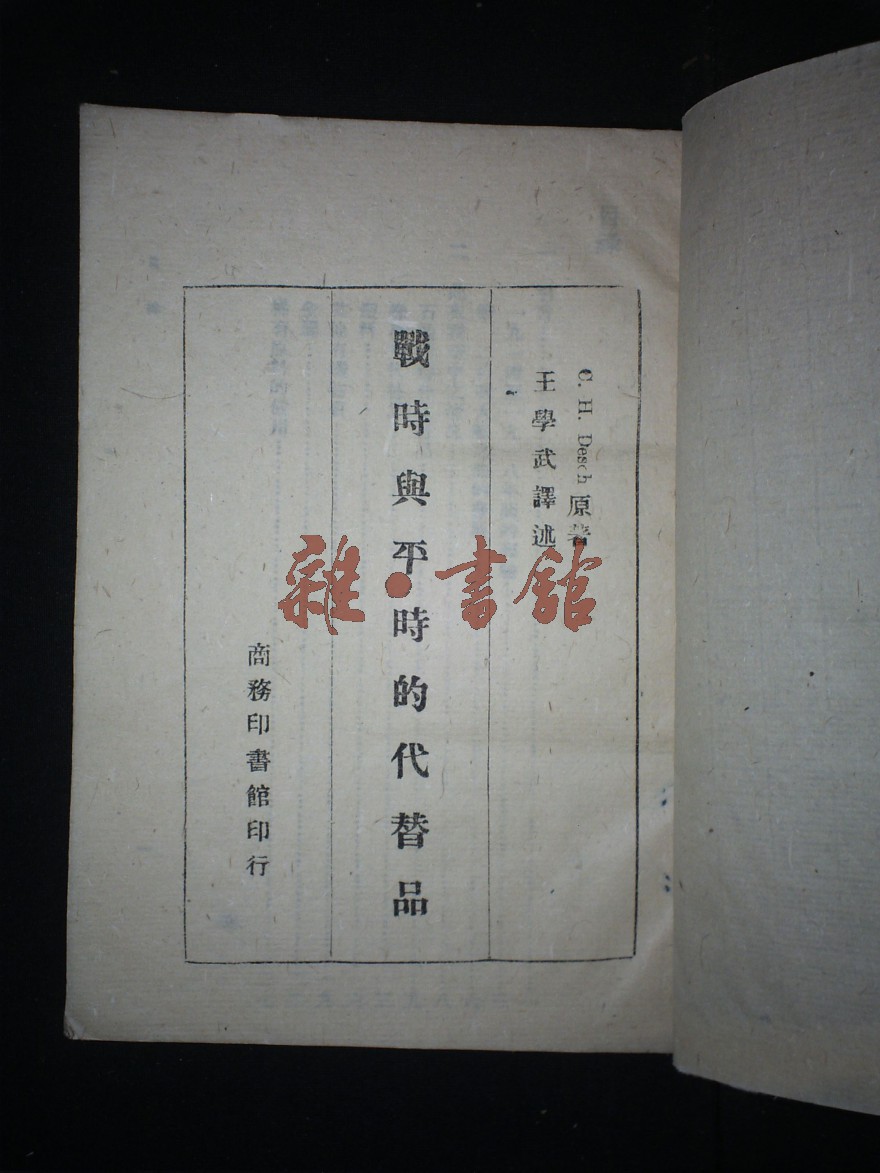 C. H. Desch 原著
王學武譯述
戰時與平時的代替品
商務印書館印行
雜·書館